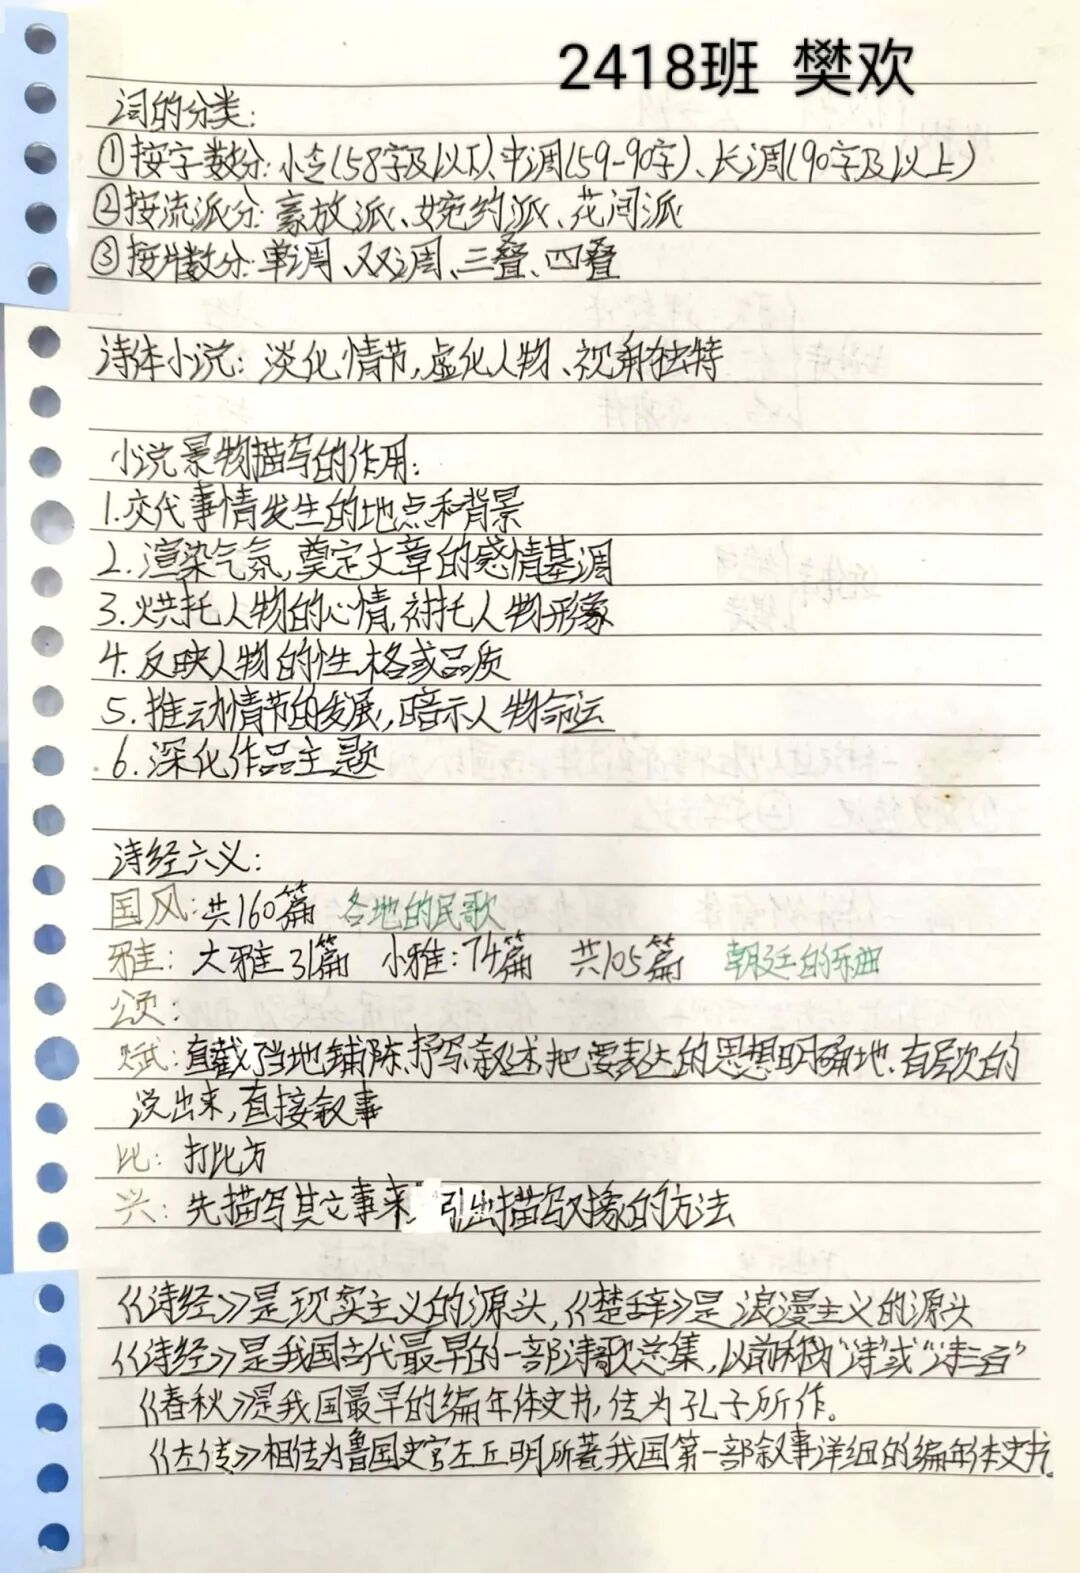 2418班 樊欢
词的分类:
①按字数分:小令(58字及以下)、中调(59-90字)、长调(90字及以上)
②按流派分:豪放派、婉约派、花间派
③按片数分:单调、双调、三叠、四叠
诗体小说:淡化情节,虚化人物、视角独特
小说景物描写的作用:
1.交代事情发生的地点和背景
2.渲染气氛,奠定文章的感情基调
3.烘托人物的心情,衬托人物形象
4.反映人物的性格或品质
5.推动情节的发展,暗示人物命运
6.深化作品主题
诗经六义:
国风:共160篇 各地的民歌
雅:大雅31篇 小雅:74篇 共105篇 朝廷的乐曲
颂:
赋:直截了当地铺陈,抒写叙述,把要表达的思想明确地.有层次的
说出来,直接叙事
比:打比方
兴:先描写其它事来引出描写对象的方法
《诗经》是现实主义的源头,《楚辞》是浪漫主义的源头
《诗经》是我国古代最早的一部诗歌总集,以前称为“诗”或“诗三百”
《春秋》是我国最早的编年体史书,传为孔子所作。
《左传》相传为鲁国史官左丘明所著我国第一部叙事详细的编年体史书。